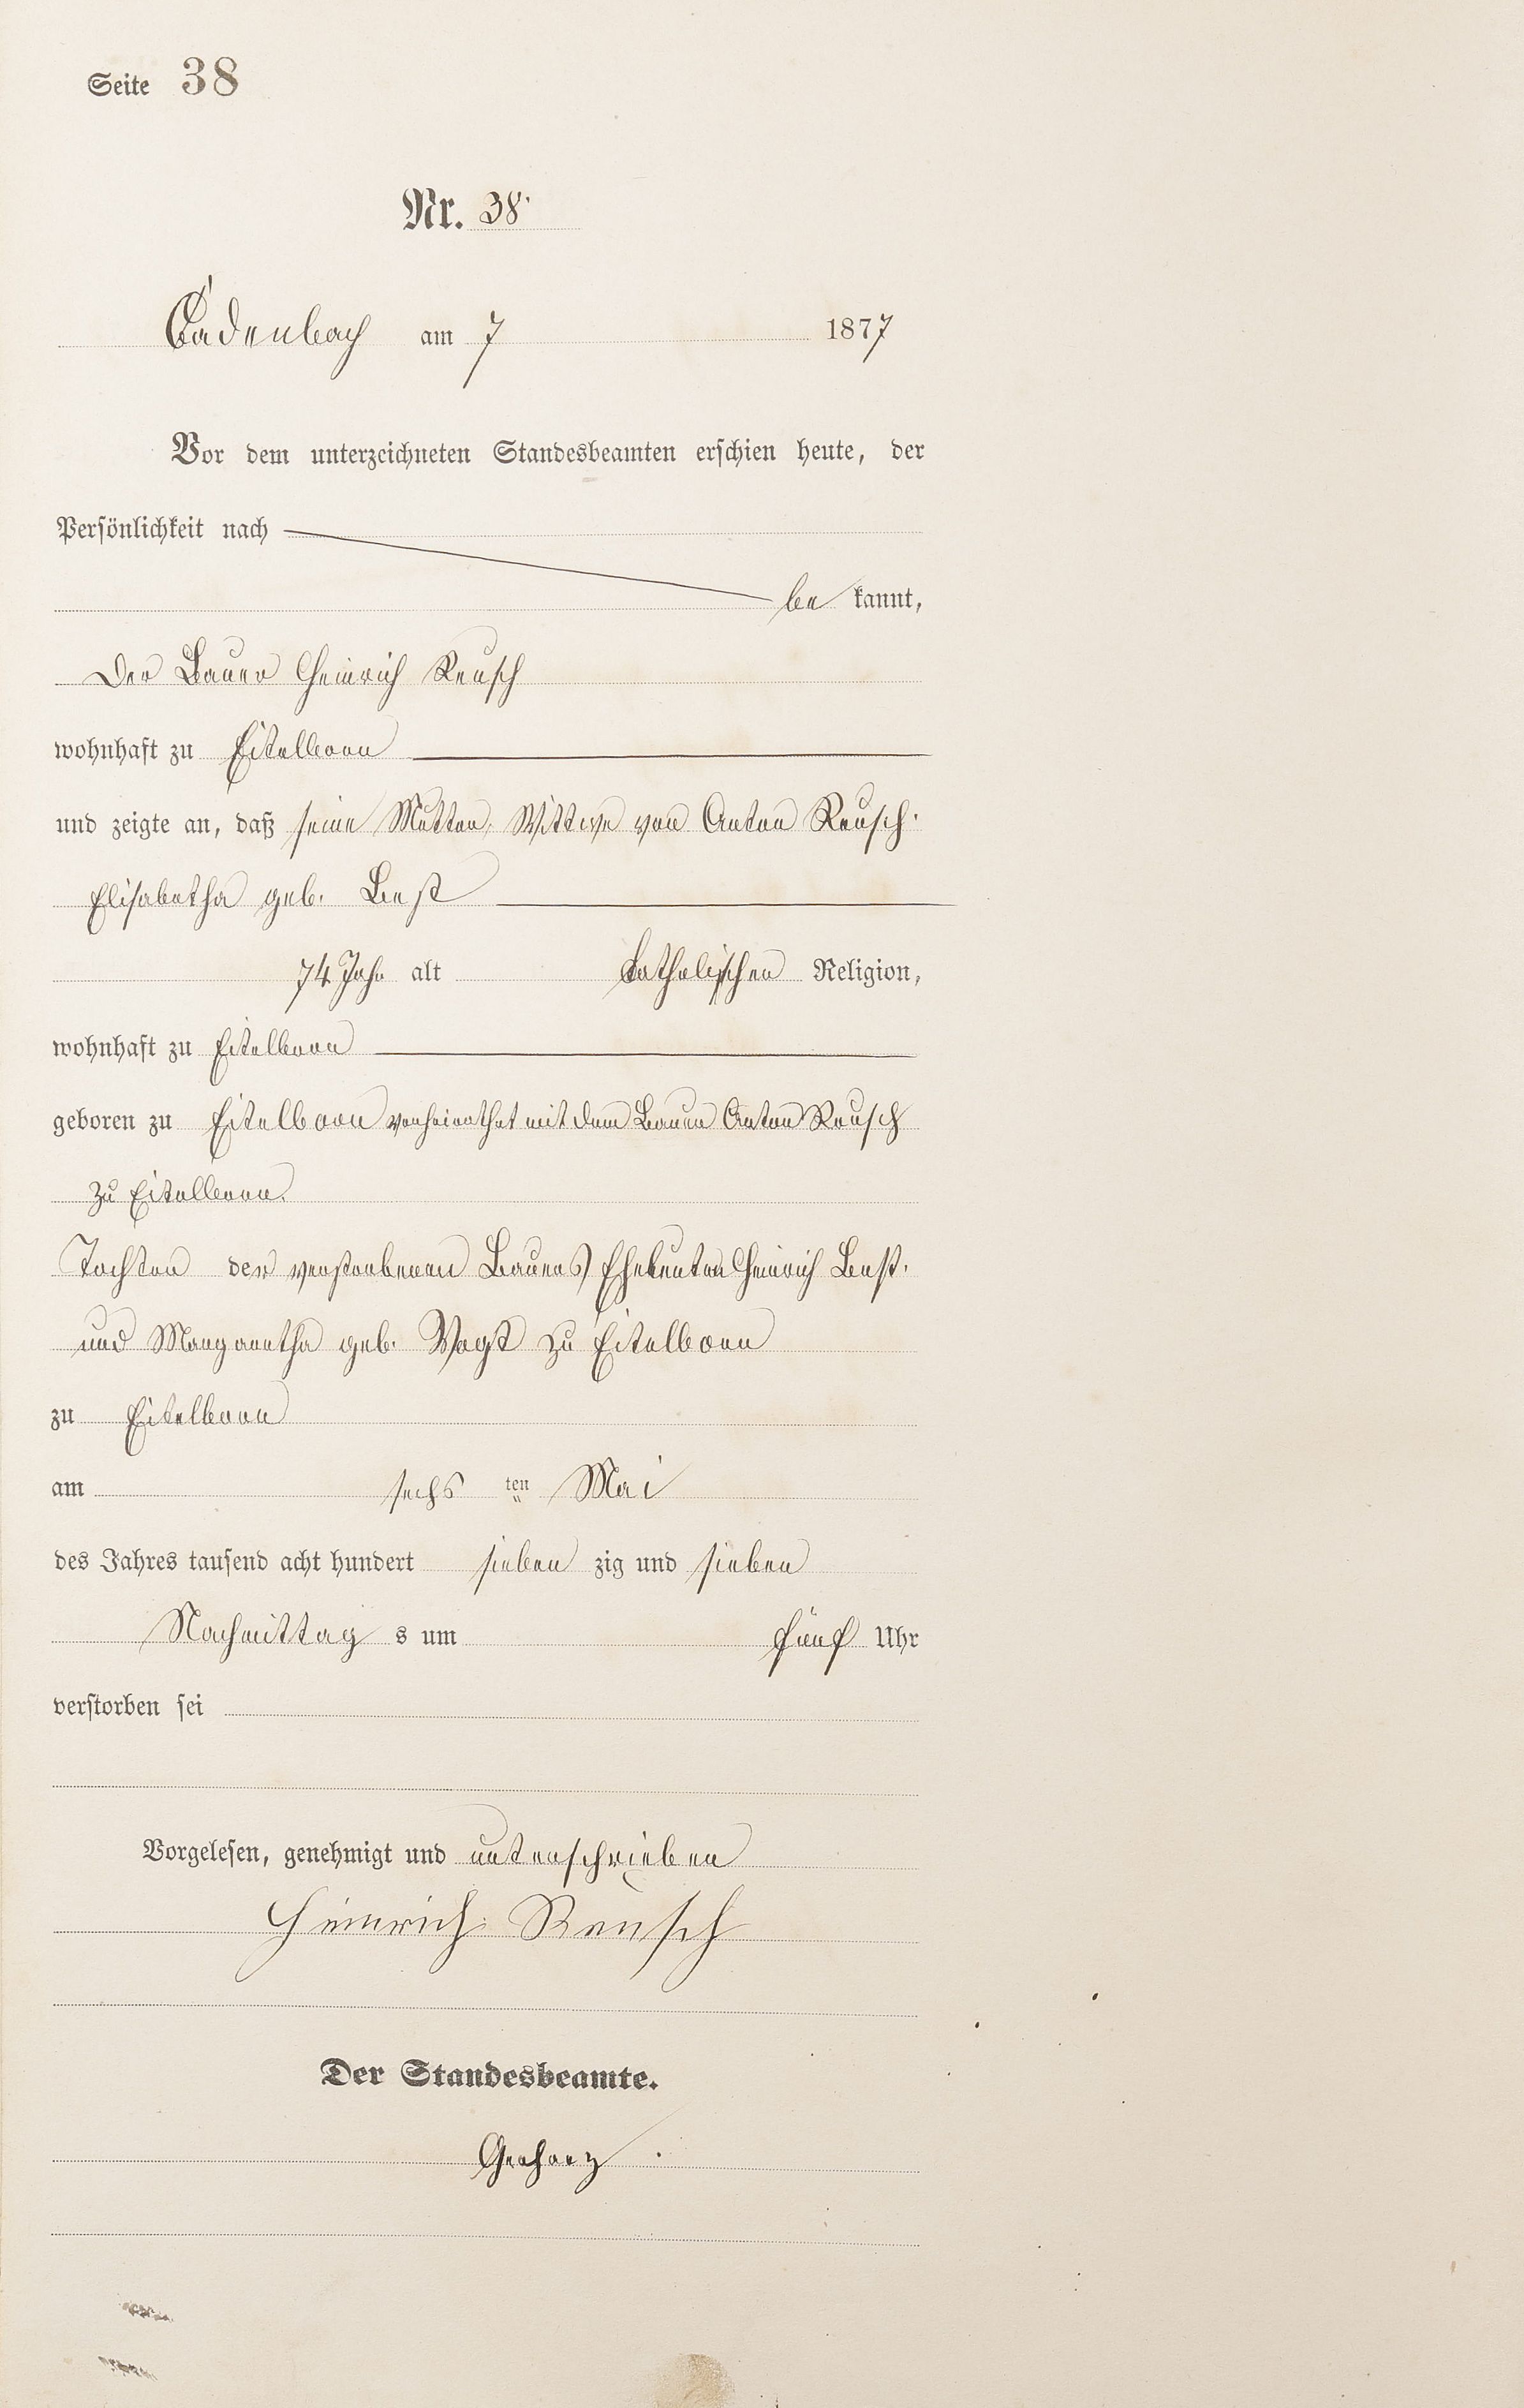 Seite 38
Nr. 38
Cadenbach am 7 1877
Vor dem unterzeichneten Standesbeamten erschien heute, der
Persönlichkeit nach
be kannt,
Der Bauer Heinrich Reusch
wohnhaft zu Eitelborn
und zeigte an, daß seine Mutter, Wittwe von Anton Reusch.
Elisabetha geb. Best
74 Jahr alt katholischen Religion,
wohnhaft zu Eitelborn
geboren zu Eitelborn verheirathet mit dem Bauer Anton Reusch
zu Eitelborn.
Tochter der verstorbenen Bauers Eheleuten Heinrich Best.
und Margaretha geb. Vogt zu Eitelborn
zu Eitelborn
am sechs ten Mai
des Jahres tausend acht hundert sieben zig und sieben
Nachmittag s um fünf Uhr
verstorben sei
Vorgelesen, genehmigt und unterschrieben
Heinrich Reusch
Der Standesbeamte.
Gerharz